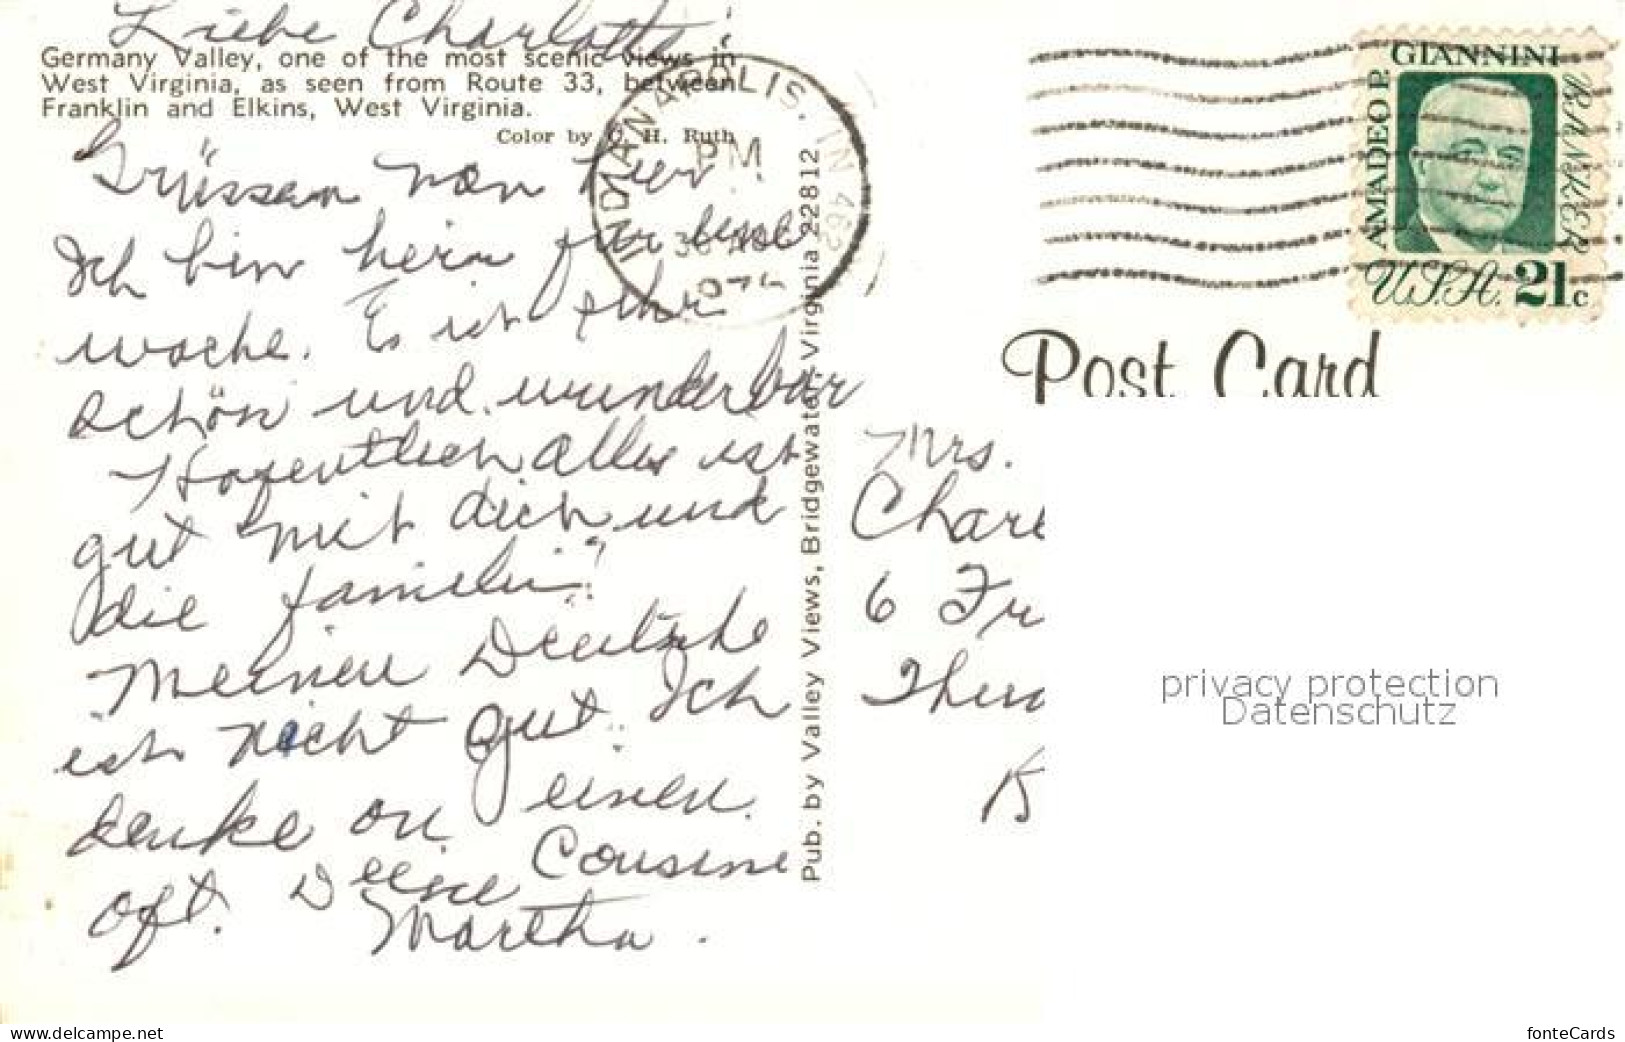 Liebe Charlotte:
Germany Valley, one of the most scenic views in
West Virginia, as seen from Route 33, between
Franklin and Elkins, West Virginia.
Color by C. H. Ruth
Grüssen von hier
Ich bin hein für eine
woche. Es ist sehr
schön und wunderbar
Hofentlich alles ist
gut mit dich und
die familie.
Meinen Deutsche
ist nicht gut. Ich
denke on einen
oft. Deine Cousine
Martha.
INDIANAPOLIS, IN 462
PM
30
Pub. by Valley Views, Bridgewater, Virginia 22812
AMADEO P. GIANNINI BANKER
U.S.A. 21c
Post Card
Mrs.
Charl
6 Fr
K
privacy protection
Datenschutz
www.delcampe.net
fonteCards